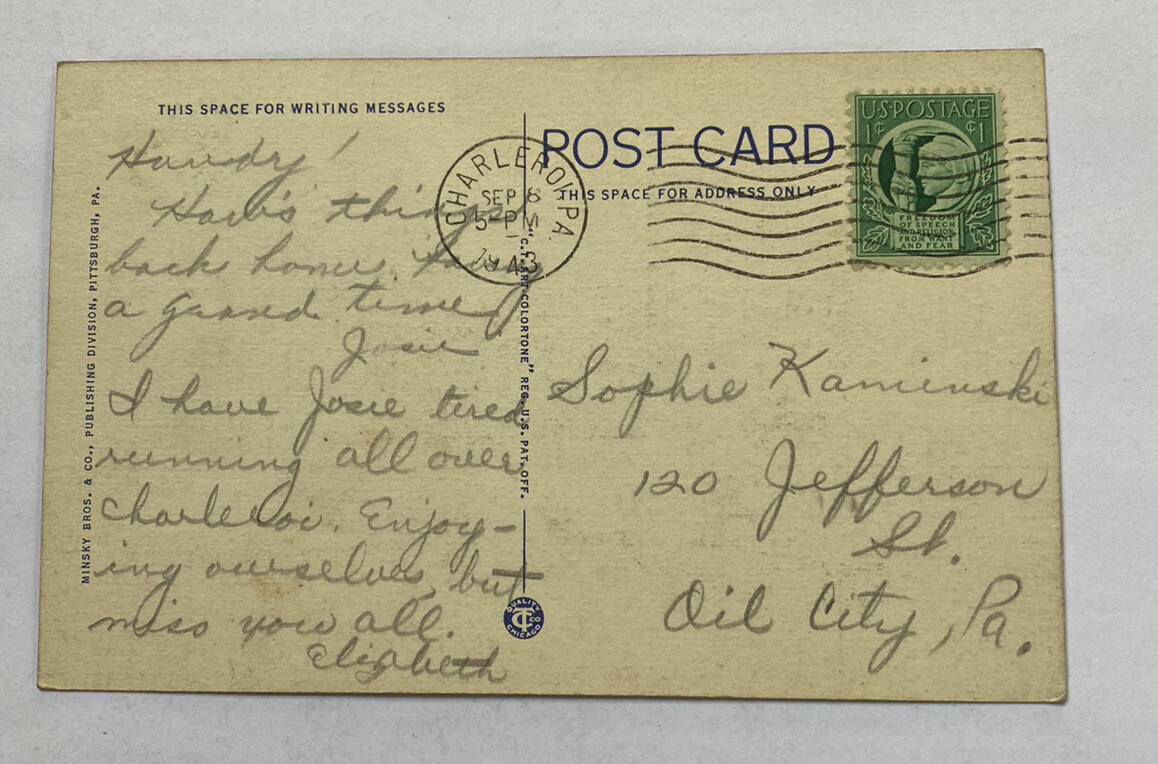 THIS SPACE FOR WRITING MESSAGES
Howdy!
How's things
back home. Having
a grand time
Josie
I have Josie tired
running all over
Charleroi. Enjoy-
ing ourselves, but
miss you all.
Elizabeth
MINSKY BROS. & CO., PUBLISHING DIVISION, PITTSBURGH, PA.
"C.T. ART-COLORTONE" REG. U.S. PAT. OFF.
QUALITY
CT CO
CHICAGO
CHARLEROI PA.
SEP 8
5-PM
1943
POST CARD
THIS SPACE FOR ADDRESS ONLY
U.S. POSTAGE
1¢ ¢1
FREEDOM
OF SPEECH
AND RELIGION,
FROM WANT
AND FEAR
Sophie Kaminski
120 Jefferson
St.
Oil City, Pa.